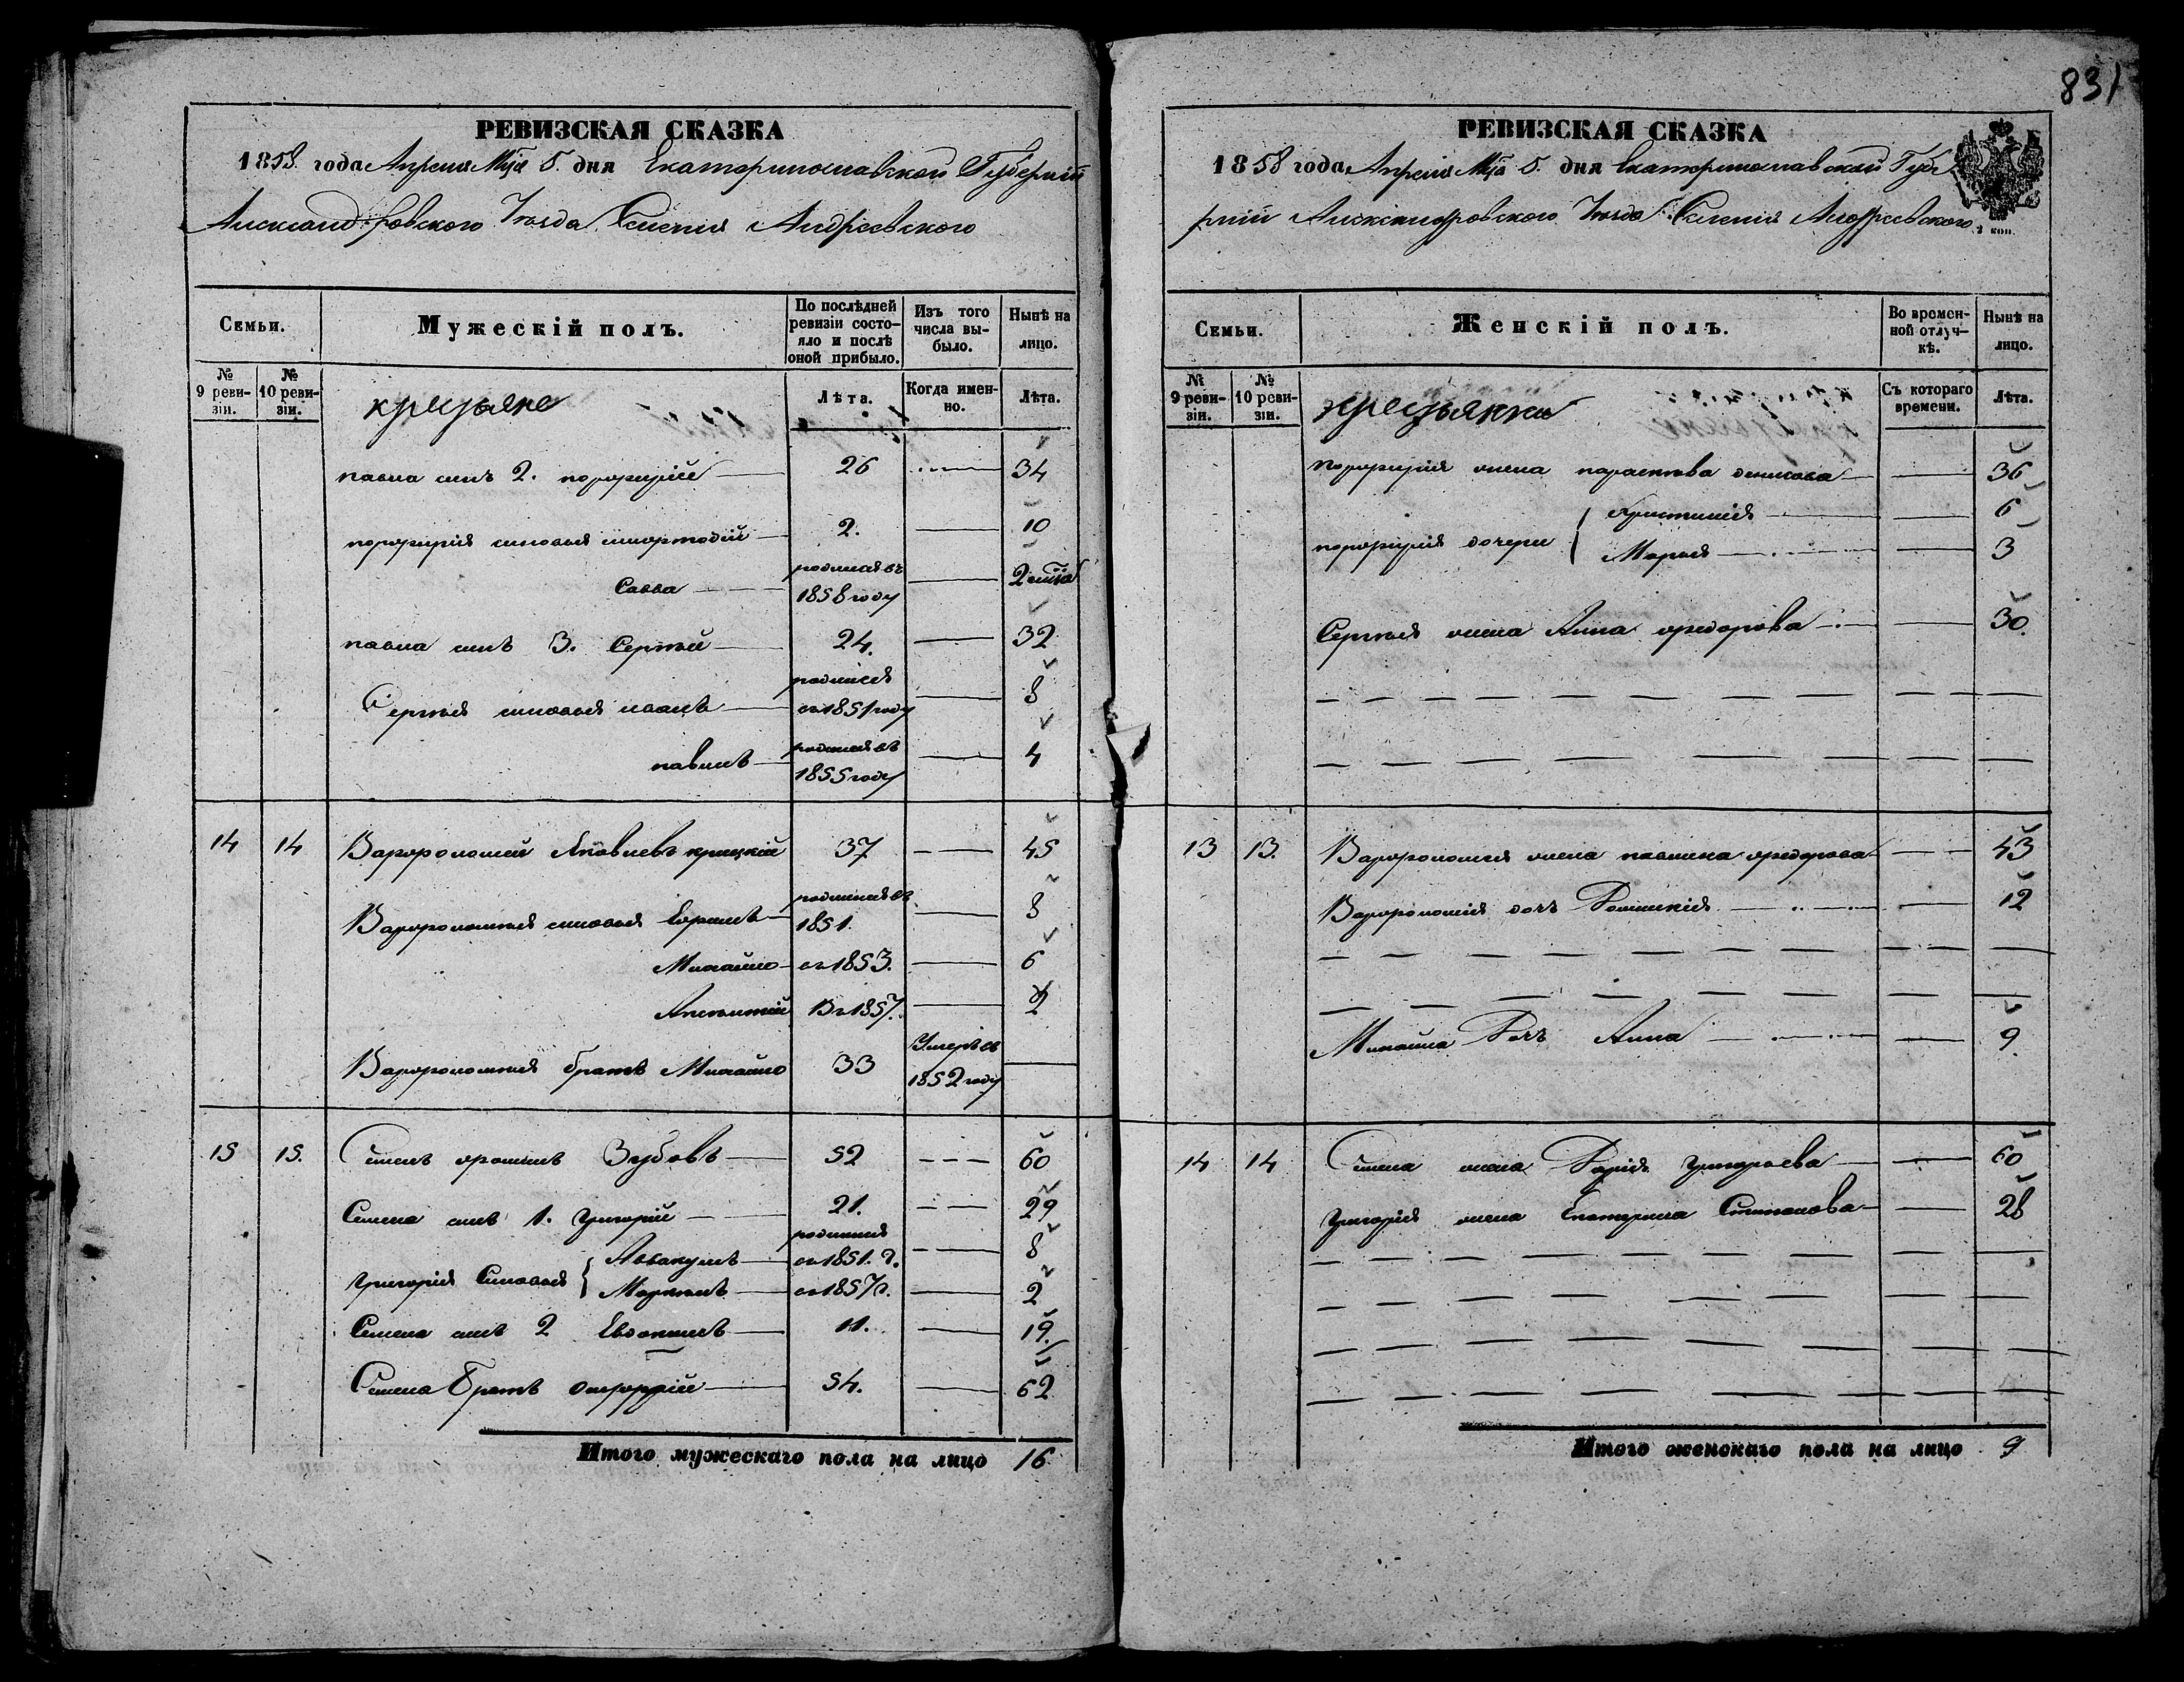 831
РЕВИЗСКАЯ СКАЗКА
1858 года Апреля Мца 5. дня Екатеринославской Губернии
Александровского Уезда Селения Андреевского
Семьи.
Мужескій полъ.
По послѣдней ревизіи состояло и послѣ оной прибыло.
Изъ того числа выбыло.
Нынѣ на лицо.
№ 9 ревизіи.
№ 10 ревизіи.
крестьяне
Лѣта.
Когда именно.
Лѣта.
павла сынъ 2. порфирій 26 34
порфирія сыновья 2. 10
Савва родился въ 1858 году 2 мца
павла сынъ 3. Сергѣй 24. 32
Сергѣя сыновья иванъ родился въ 1851 году 8
павелъ родился въ 1855 году 4
14 14 Варфоломей Яковлевъ 37 45
Варфоломея сыновья Ефимъ родился въ 1851. 8
Михайло въ 1853. 6
Въ 1857. 2
Варфоломея братъ Михайло 33 Умеръ въ 1852 году
15 15. Семенъ Зубовъ 52 60
Семена сынъ 1. григорій 21. 29
григорія Сыновья Аввакумъ родился въ 1851. г. 8
Мартинъ въ 1857 г. 2
Семена сынъ 2 Евдокимъ 11. 19.
Семена братъ 54. 62
Итого мужескаго пола на лицо 16
РЕВИЗСКАЯ СКАЗКА
1858 года Апреля Мца 5. дня Екатеринославской Губе
рнии Александровского Уезда Селения Андреевского
коп.
Семьи.
Женскій полъ.
Во временной отлучкѣ.
Нынѣ на лицо.
№ 9 ревизіи.
№ 10 ревизіи.
крестьянки
Съ котораго времени.
Лѣта.
порфирія жена параскева денисова 36
порфирія дочери Христинія 6
Марья 3
Сергѣя жена Анна федорова 30.
13 13. Варфоломея жена павлина федорова 43
Варфоломея дочь 12
Михайла Дочь Анна 9.
14 14 Семена жена Дарія григорьева 60
григорія жена Екатерина Степанова 28
Итого женскаго пола на лицо 9